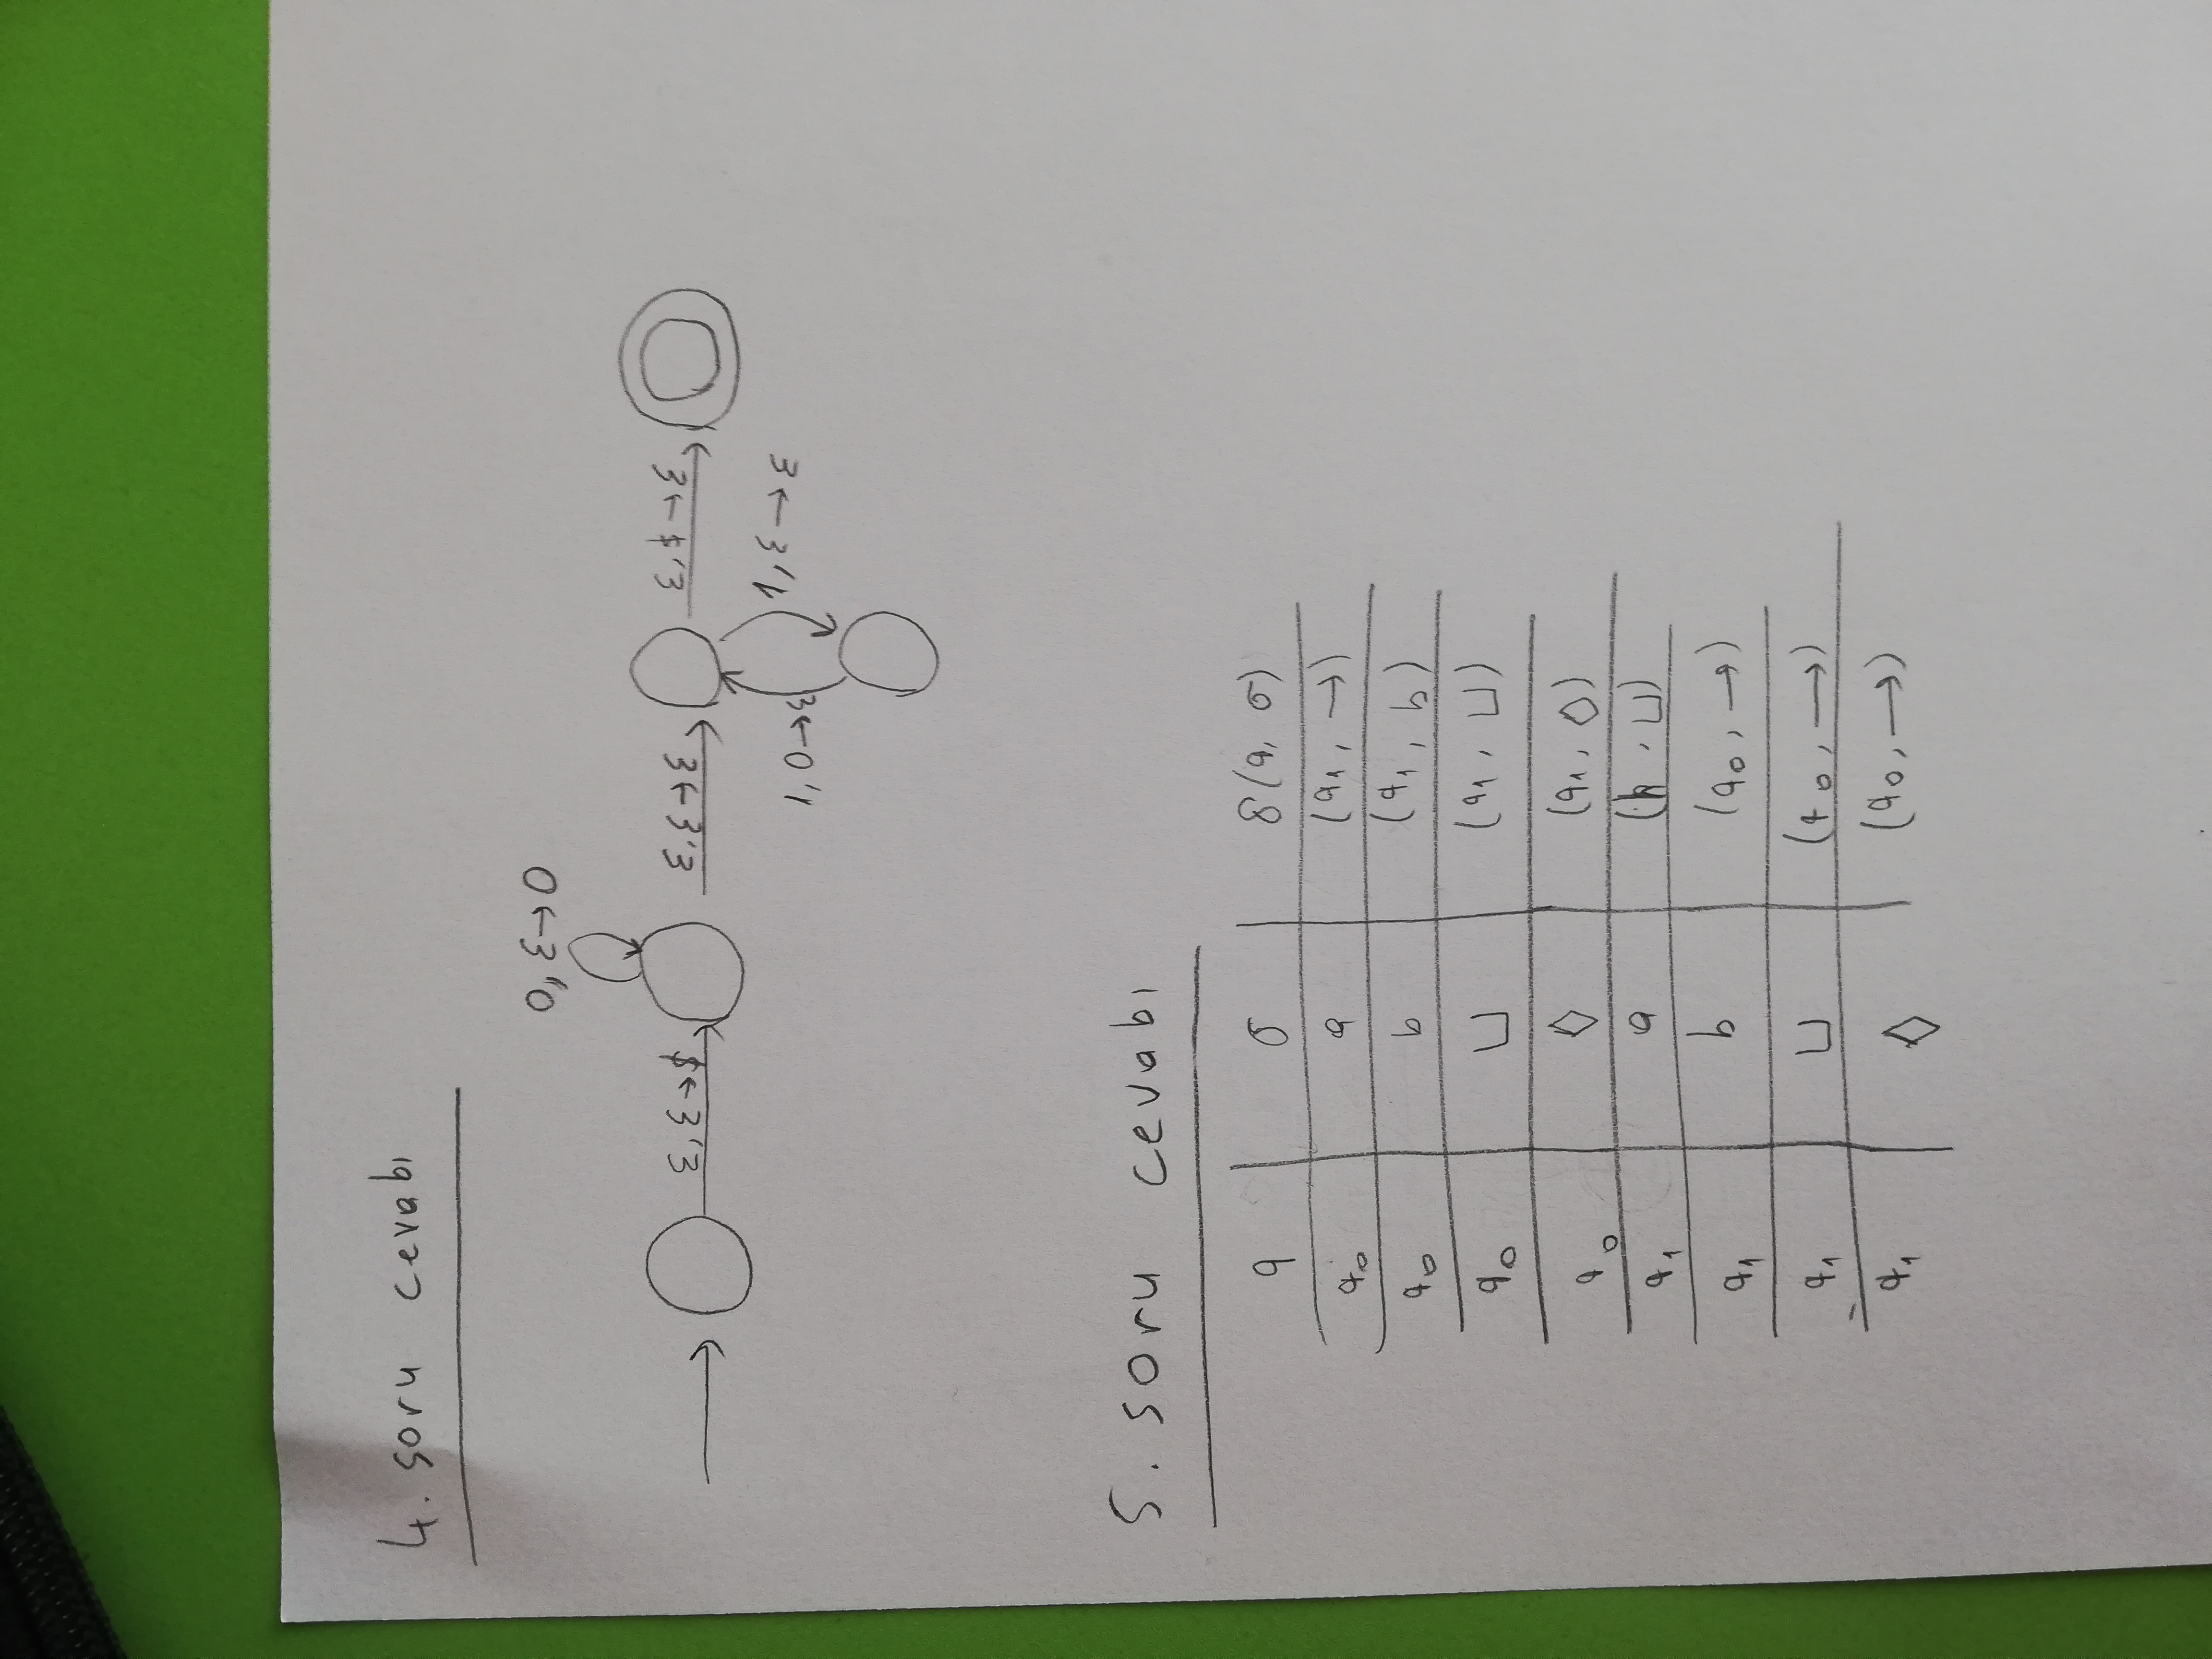 4. soru cevabı
0, ε→0
ε,ε→$ ε,ε→ε ε,$→ε
1,0→ε 1,ε→ε
5. soru cevabı
q σ δ(q, σ)
q₀ a (q₁, →)
q₀ b (q₁, b)
q₀ ⊔ (q₁, ⊔)
q₀ ◊ (q₁, ◊)
q₁ a (h, ⊔)
q₁ b (q₀, →)
q₁ ⊔ (q₀, →)
q₁ ◊ (q₀, →)